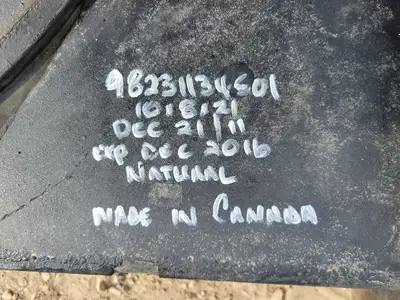 98231134501
10.8.21
DEC 21/11
exp DEC 2016
NATURAL
MADE IN CANADA